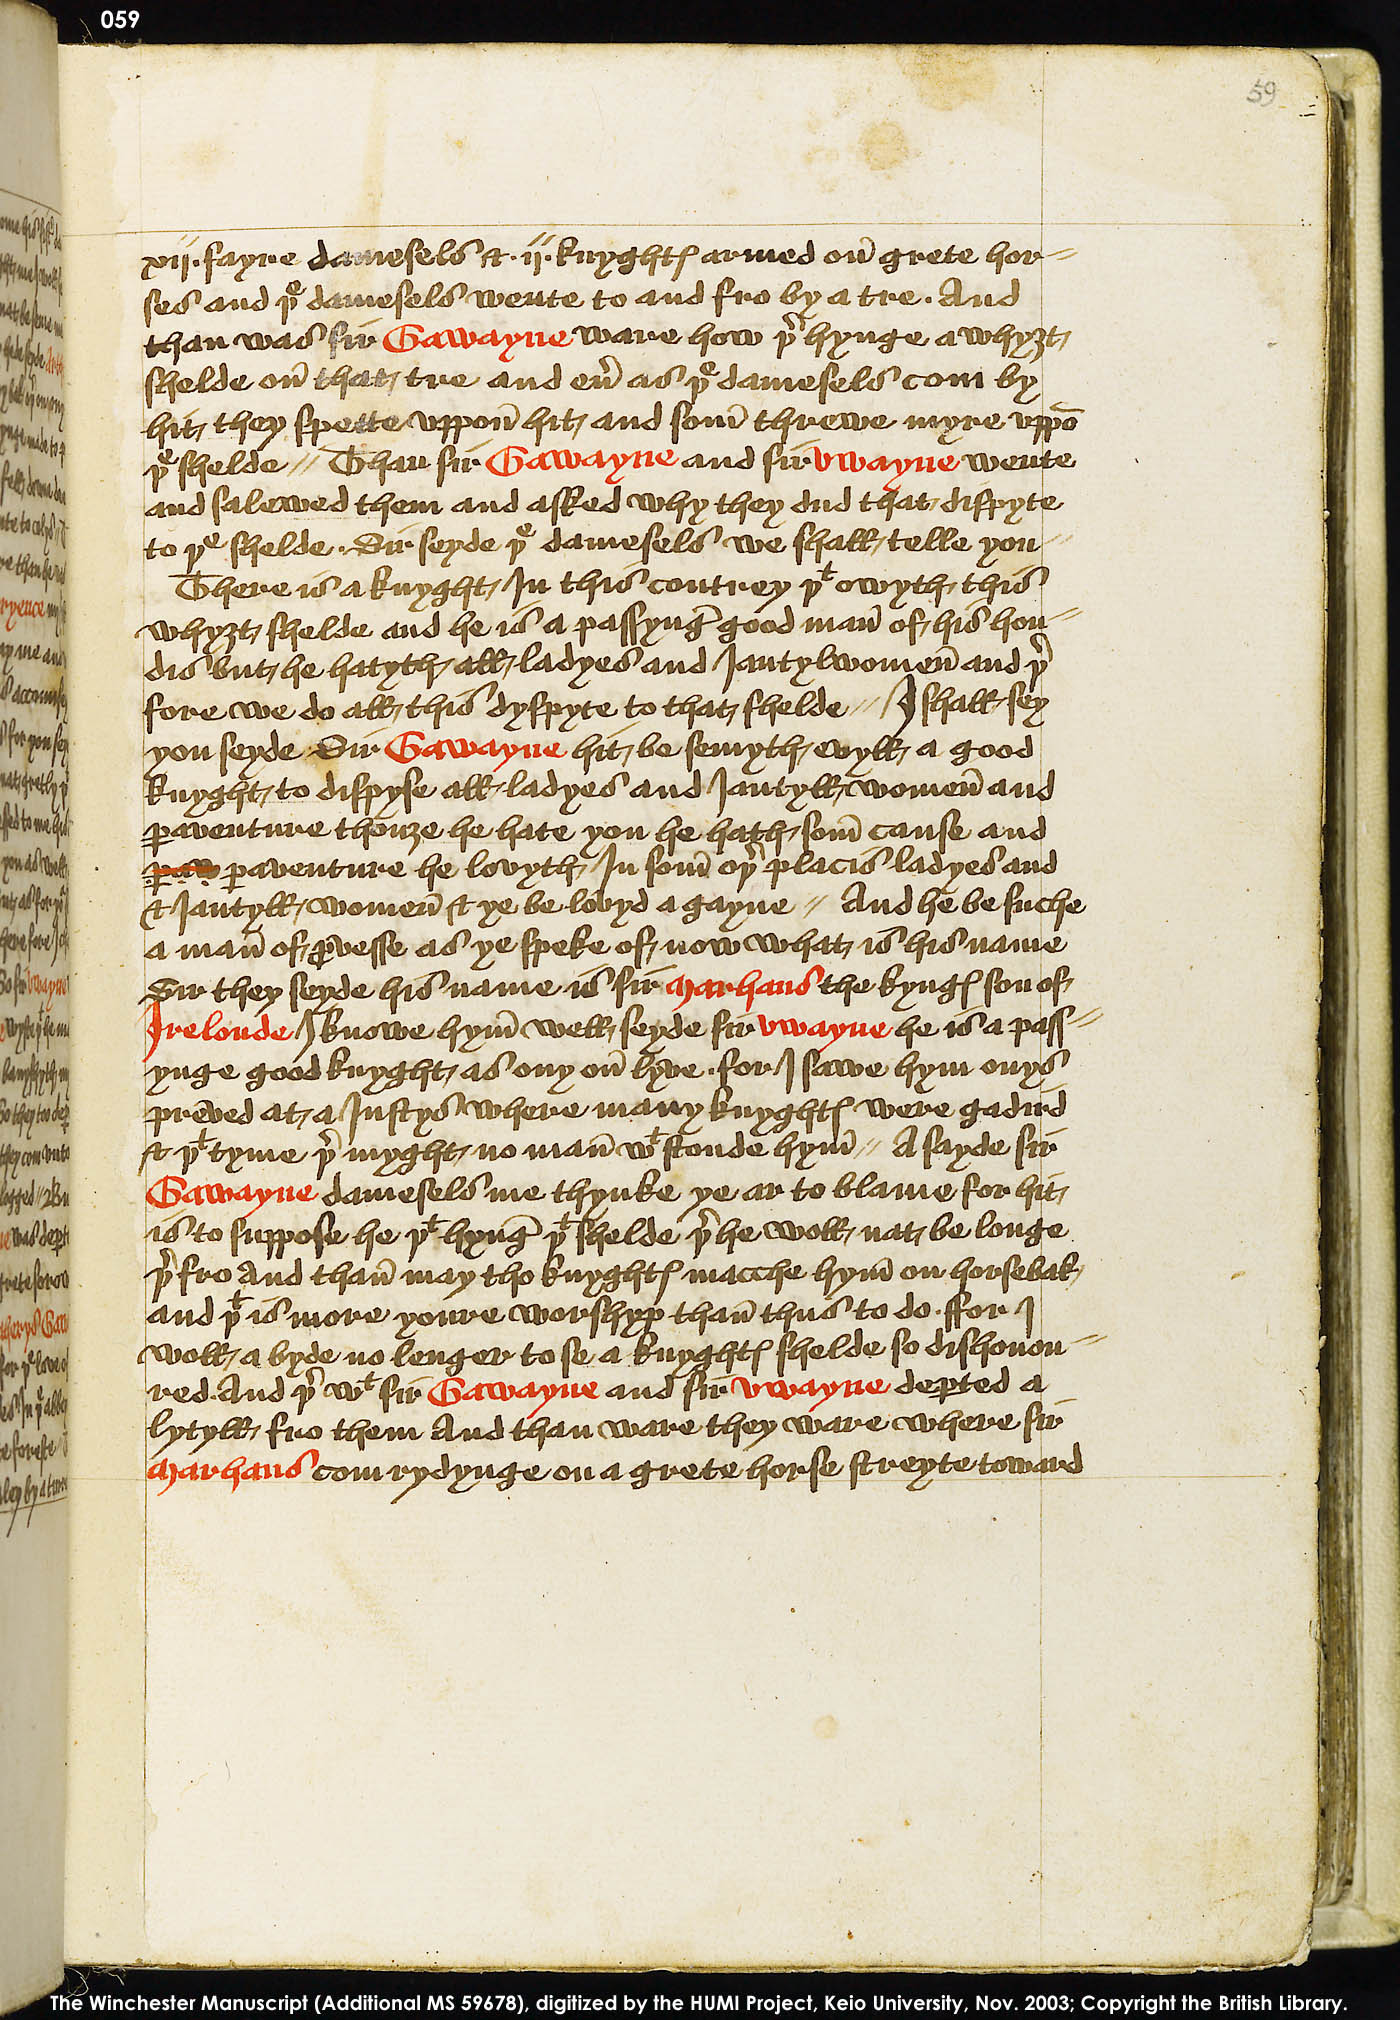 059
59
xij. fayre damesels & .ij. knyghtꝭ armed on̄ grete hor〃
ses and þe damesels wente to and fro by a tre. And
than was sir Gawayne ware how þr hynge a whyȝt
shelde on̄ that tre and eū as þe damesels com by
hit they spette vppon̄ hit and som̄ threwe myre vppō
þe shelde // Than sir Gawayne and sir Vwayne wente
and salewed them and asked why they dud that dispyte
to þe shelde. Sir seyde þe damesels we shall telle you〃
There is a knyght In this contrey þt owyth this
whyȝt shelde and he is a passynḡ good man̄ of his hon〃
dis but he hatyth all ladyes and Jantylwomen̄ and þr
fore we do all this dyspyte to that shelde // I shall sey
you seyde Sir Gawayne hit be semyth evyll a good
knyght to dispyse all ladyes and Jantyll women̄ and
ꝑaventure thouȝe he hate you he hath som̄ cause and
ꝑaw ꝑaventure he lovyth In som̄ oþr placis ladyes and
& Jantyll women̄ & ye be lovyd a gayne // And he be suche
a man̄ of ꝓvesse as ye speke of now what is his name
Sir they seyde his name is sir Marhaus the kyngꝭ son of
Irelonde I knowe hym̄ well seyde sir Vwayne he is a pass〃
ynge good knyght as ony on̄ lyve. for I sawe hym onys
preved at a Justys where many knyghtꝭ were gadird
& þt tyme þr myght no man̄ wt stonde hym̄ // A sayde sir
Gawayne damesels me thynke ye ar to blame for hit
is to suppose he þt hynḡ þt shelde þr he woll nat be longe
þr fro And than̄ may tho knyghtꝭ macche hym̄ on horsebak
and þt is more youre worshyp than̄ thus to do. ffor I
woll a byde no lenger to se a knyghtꝭ shelde so dishonou〃
red. And þr wt sir Gawayne and sir Vwayne deꝑted a
lytyll fro them And than ware they ware where sir
Marhaus com rydynge on a grete horse streyte toward
The Winchester Manuscript (Additional MS 59678), digitized by the HUMI Project, Keio University, Nov. 2003; Copyright the British Library.